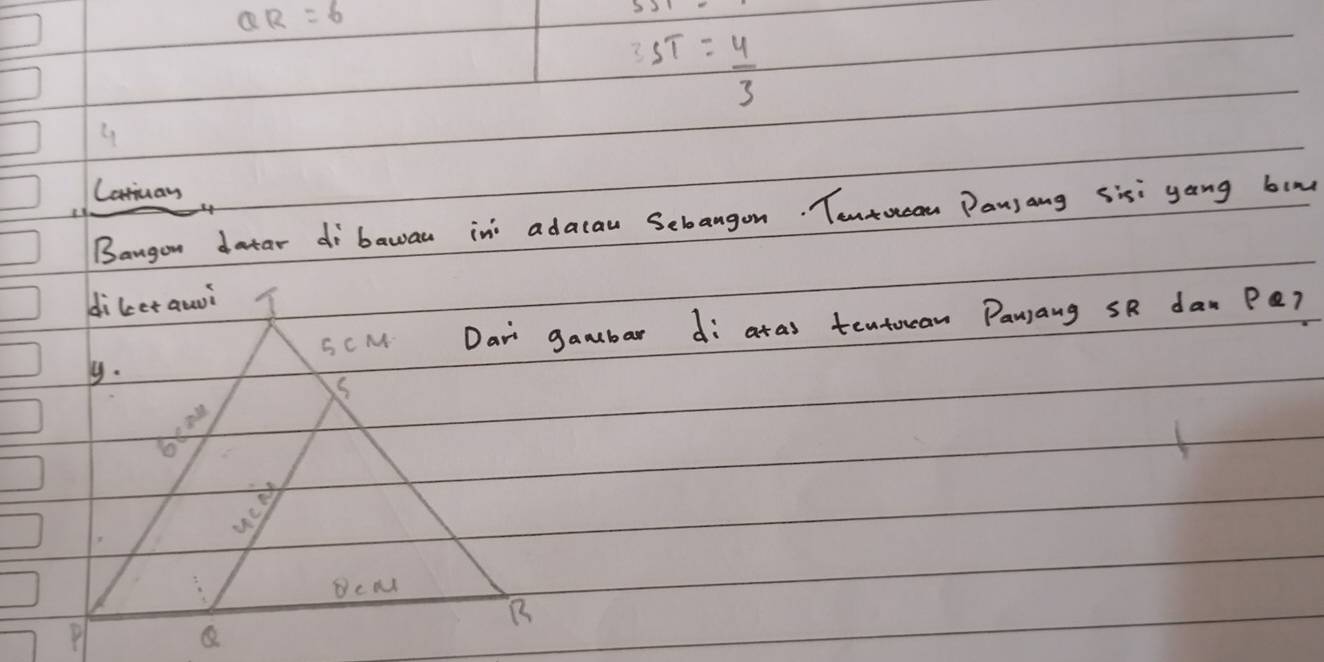 QR = 6
3ST = 4/3
4
"Latihan"
Bangun datar di bawah ini adalah Sebangun. Tentukan Panjang sisi yang blm
diketahui
y.
Dari gambar di atas tentukan Panjang SR dan PQ?
T
5 CM
S
6cm
4cm
...
8cm
P
Q
R